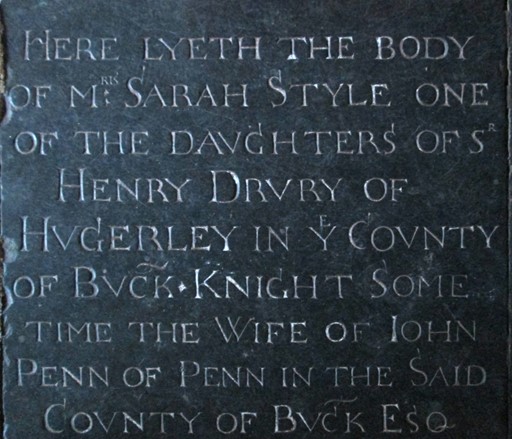 HERE LYETH THE BODY
OF Mʳⁱˢ: SARAH STYLE ONE
OF THE DAVGHTERS OF Sʳ
HENRY DRVRY OF
HVGERLEY IN Yᴱ COVNTY
OF BVC̃K · KNIGHT SOME
TIME THE WIFE OF IOHN
PENN OF PENN IN THE SAID
COVNTY OF BVC̃K ESQ